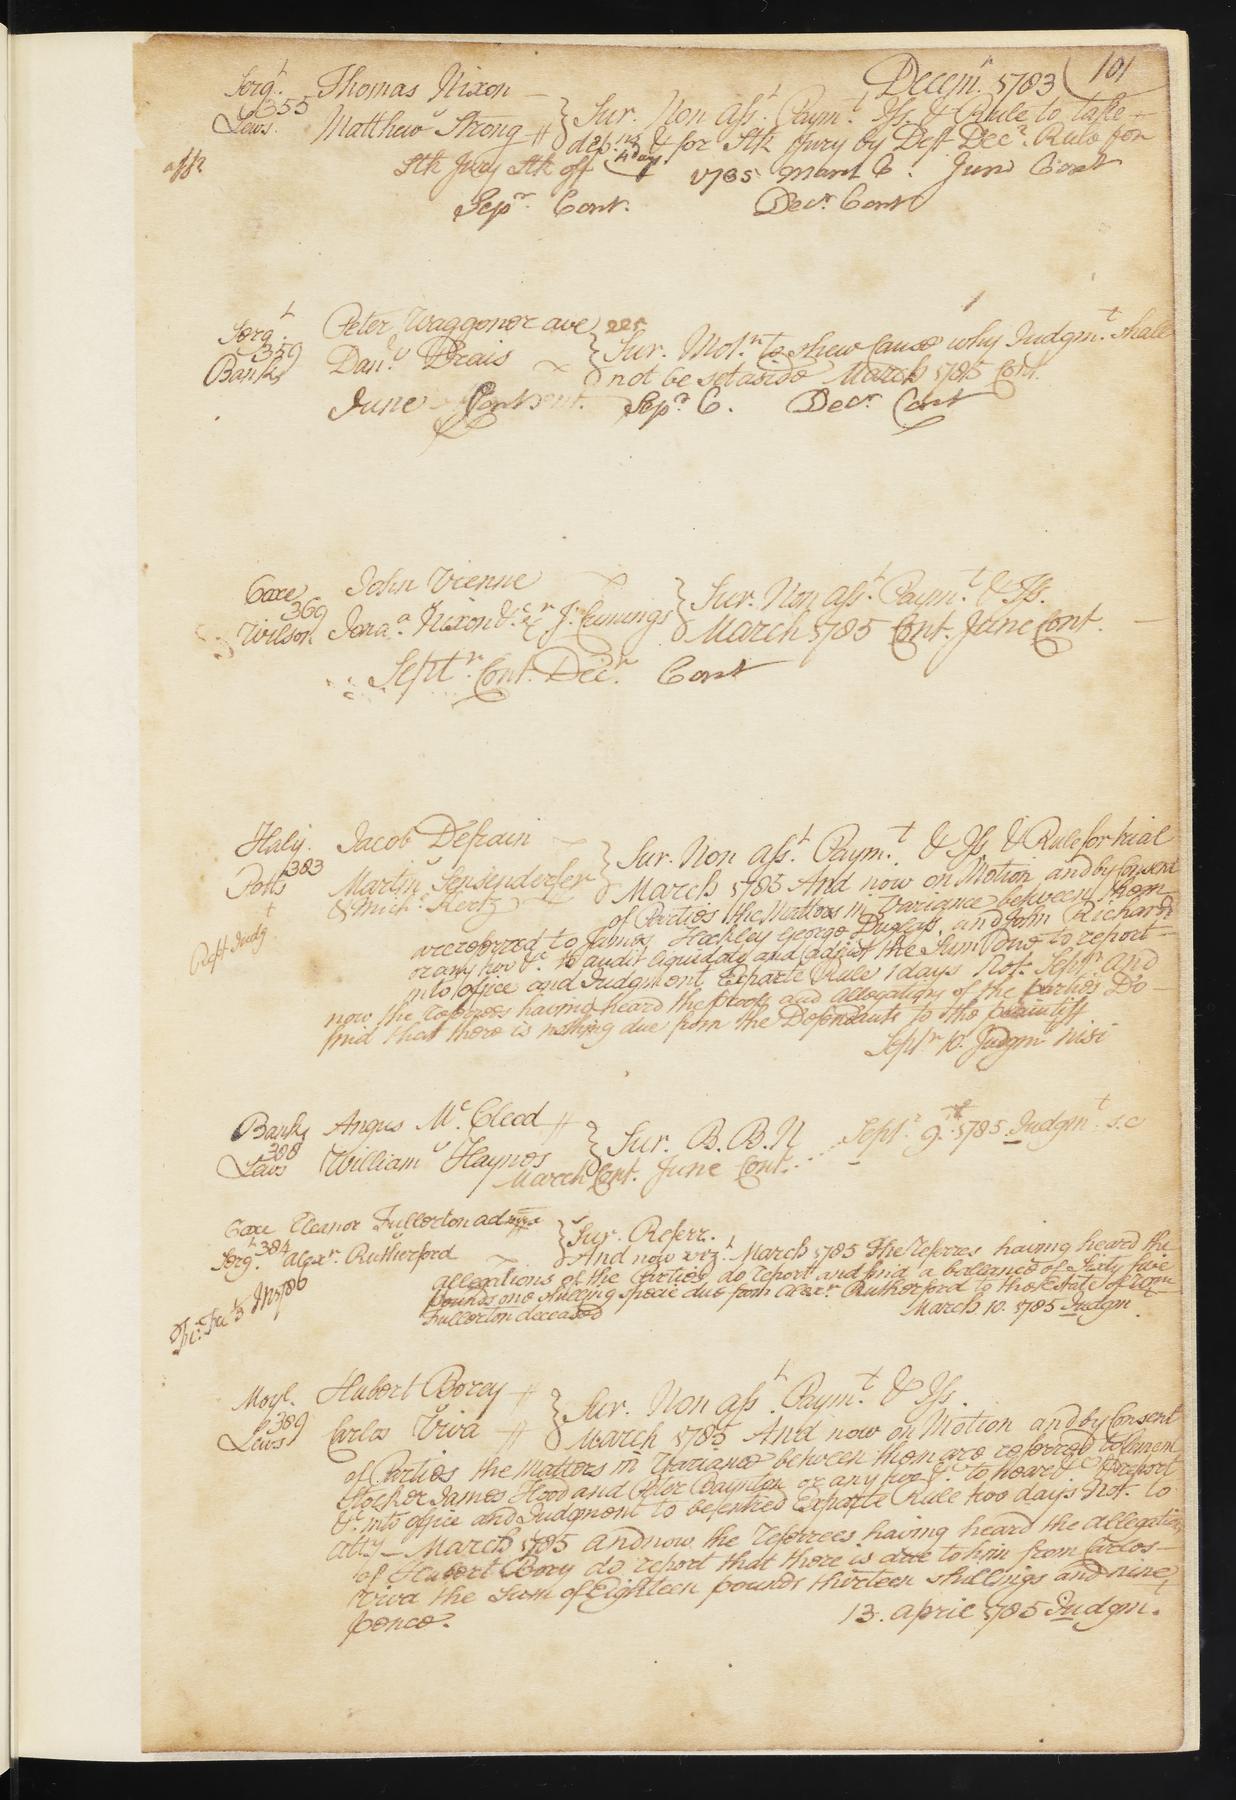 Decemr. 1783 101
Sergt. Thomas Nixon
355
Lewis. Matthew Strong } Sur. Non asst. Paymt. Iss & Rule to take
depns & for Stk Jury by Deft Decr. Rule for
Stk Jury Stk off 4 days 1785 March C. June Cont
Sepr. Cont. Decr. Cont
Sergt. Peter Waggoner
359
Banks Danl. Drais } Sur. Motn. to shew Cause why Judgmt. shall
not be set aside March 1785 Cont.
June Cont. Sepr. C. Decr. Cont
Coxe John Vienne
369
Wilson Jona. Nixon &c. J. Cumings } Sur. Non asst. Paymt. & Iss.
March 1785 Cont. June Cont.
Septr. Cont. Decr. Cont
Haly. Jacob Defrain } Sur. Non asst. Paymt. & Iss & Rule for trial
383
Potts Martin Sensenderfer March 1785 And now on Motion and by Consent
& Michl. Kertz of Parties the Matters in Variance between them
are referred to James Hockley George Duglass, and John Richards
or any two &c. to audit liquidate and adjust the Sum due to report
into office and Judgment Exparte Rule days Not. Septr. and
now the referees having heard the proofs and allegations of the parties Do
find that there is nothing due from the Defendants to the plaintiff
Septr. 10. Judgmt nisi
Banks Angus Mc.Cleod
308
Lewis William Haynes } Sur. B. B. N Septr. 9th. 1785 Judgmt. s.c
March Cont. June Cont.
Coxe Eleanor Fullerton admx } Sur. Referr.
Sergt. 384 Alexr. Rutherford And now vizt. March 1785 The referees having heard the
allegations of the Parties do report and find a ballance of Sixty five
pounds one shilling specie due from Alexr. Rutherford to the Estate of
Fullerton deceased March 10. 1785 Judgm.
Moyl. Hubert Borey } Sur. Non asst. Paymt. & Iss.
389
Lewis Carlos Viva March 1785 And now on Motion and by Consent
of Parties the Matters in Variance between them are referred to Clement
Stocker James Hood and Peter Baynton or any two &c. to hear &c. & report
&c. into office and Judgment to be entred Exparte Rule two days Not. to
atty. March 1785 and now the referrees having heard the allegations
of Hubert Borey do report that there is due to him from Carlos
Viva the Sum of Eighteen pounds thirteen shillings and nine
pence. 13. april 1785 Judgm.